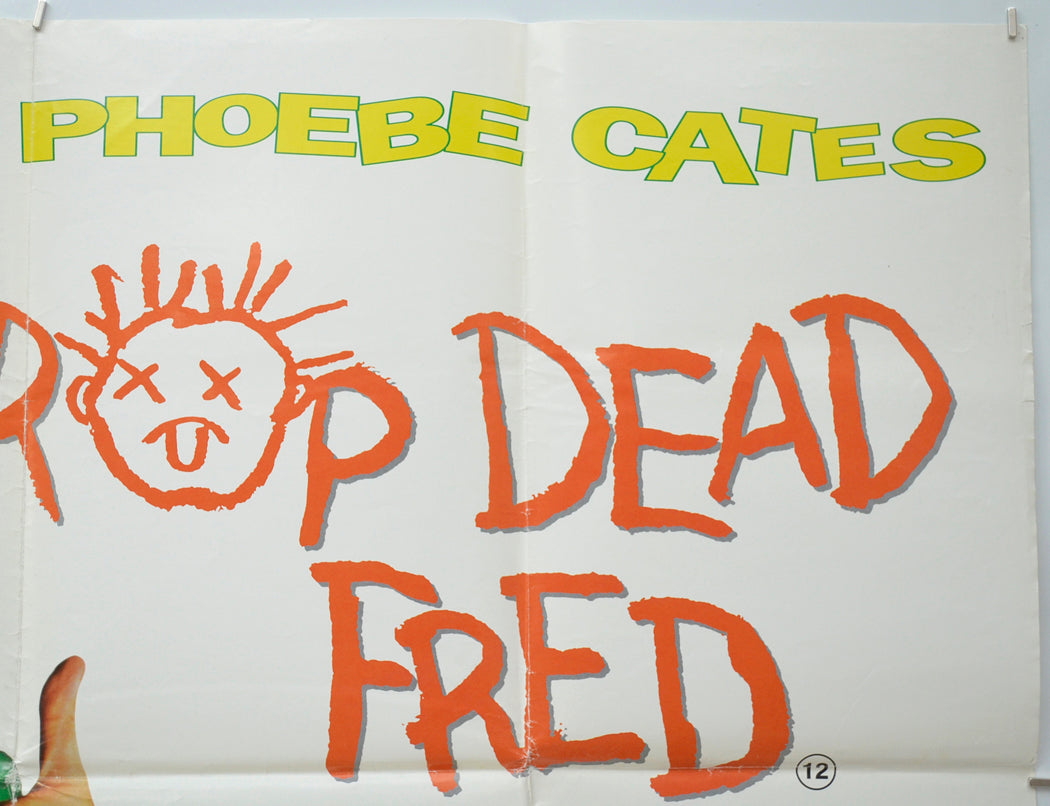 PHOEBE CATES
ROP DEAD
FRED
12